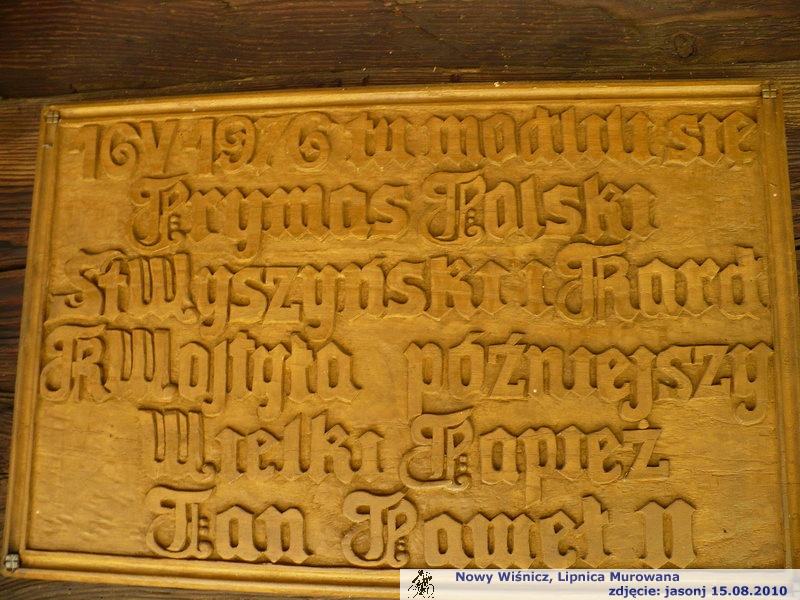 16 V 1976 tu modlili się
Prymas Polski
St Wyszyński i Kard
K Wojtyła późniejszy
Wielki Papież
Jan Paweł II
Nowy Wiśnicz, Lipnica Murowana
zdjęcie: jasonj 15.08.2010